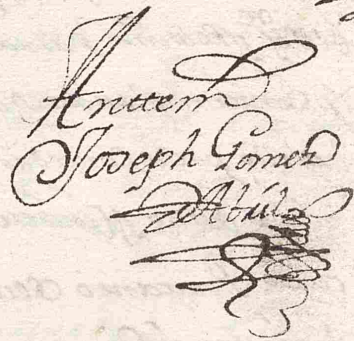 Anttemi
Joseph Gomez
de Abril